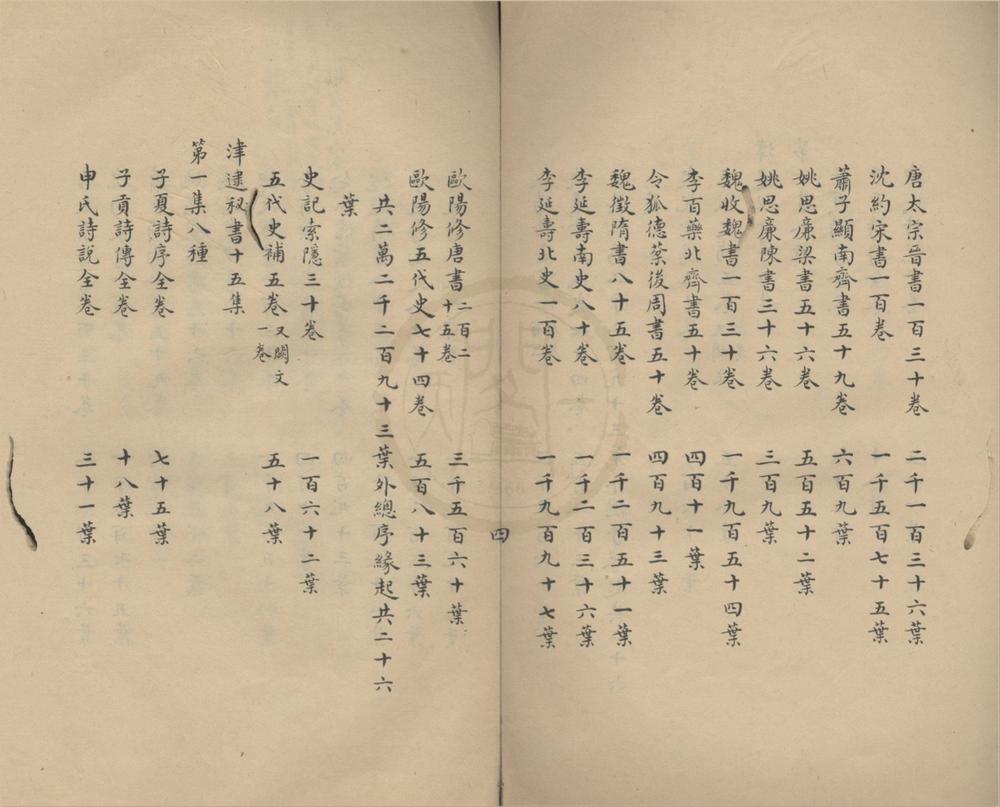 唐太宗晉書一百三十卷 二千一百三十六葉
沈約宋書一百卷 一千五百七十五葉
蕭子顯南齊書五十九卷 六百九葉
姚思廉梁書五十六卷 五百五十二葉
姚思廉陳書三十六卷 三百九葉
魏收魏書一百三十卷 一千九百五十四葉
李百藥北齊書五十卷 四百十一葉
令狐德棻後周書五十卷 四百九十三葉
魏徵隋書八十五卷 一千二百五十一葉
李延壽南史八十卷 一千二百三十六葉
李延壽北史一百卷 一千九百九十七葉
四
歐陽修唐書二百二十五卷 三千五百六十葉
歐陽修五代史七十四卷 五百八十三葉
共二萬二千二百九十三葉外總序緣起共二十六
葉
史記索隱三十卷 一百六十二葉
五代史補五卷又闕文一卷 五十八葉
津逮秘書十五集
第一集八種
子夏詩序全卷 七十五葉
子貢詩傳全卷 十八葉
申氏詩說全卷 三十一葉